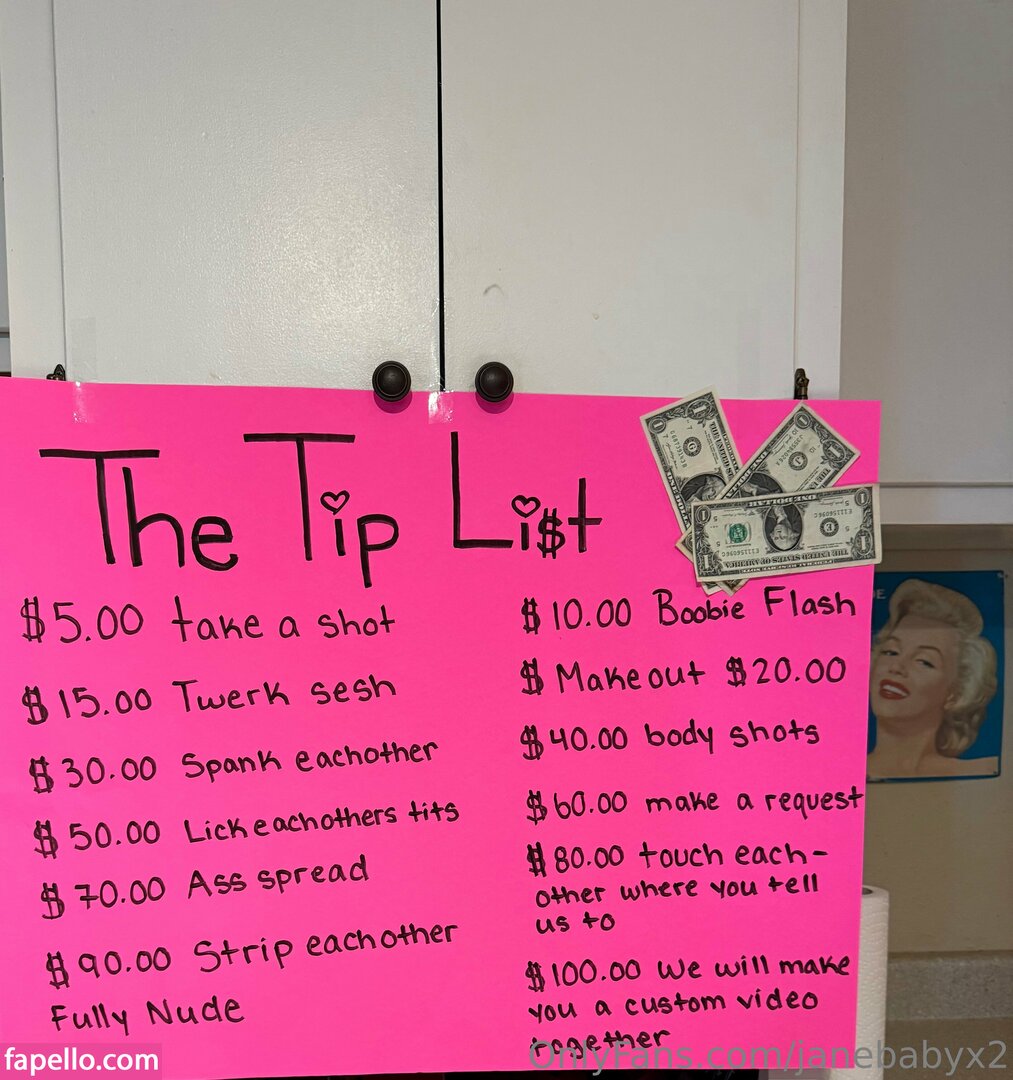 The Tip Li$t
$5.00 take a shot
$15.00 Twerk sesh
$30.00 Spank eachother
$50.00 Lick eachothers tits
$70.00 Ass spread
$90.00 Strip eachother
Fully Nude
$10.00 Boobie Flash
$ Makeout $20.00
$40.00 body shots
$60.00 make a request
$80.00 touch each-
other where you tell
us to
$100.00 We will make
you a custom video
together
E11156096C
fapello.com
OnlyFans.com/janebabyx2